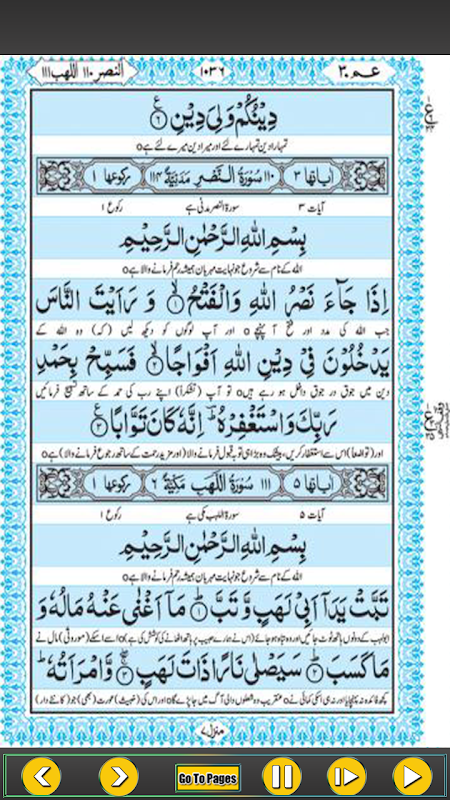 عـم ٣٠
١٠٣٦
النصر ١١٠ اللهب ١١١
دِيْنُكُمْ وَلِيَ دِيْنِ ۝٦
تمہارا دین تمہارے لئے اور میرا دین میرے لئے ہے ٥
اٰیاتها ٣ ١١٠ سُوْرَةُ النَّصْرِ مَدَنِیَّةٌ ١١٤ رکوعها ١
آیات ٣ سورۃ النصر مدنی ہے رکوع ١
بِسْمِ اللهِ الرَّحْمٰنِ الرَّحِيْمِ
اللہ کے نام سے شروع جو نہایت مہربان ہمیشہ رحم فرمانے والا ہے ٥
اِذَا جَآءَ نَصْرُ اللهِ وَالْفَتْحُ ۝١ وَ رَاَيْتَ النَّاسَ
جب اللہ کی مدد اور فتح آ پہنچے ٥ اور آپ لوگوں کو دیکھ لیں (کہ) وہ اللہ کے
يَدْخُلُوْنَ فِيْ دِيْنِ اللهِ اَفْوَاجًا ۝٢ فَسَبِّحْ بِحَمْدِ
دین میں جوق در جوق داخل ہو رہے ہیں ٥ تو آپ (تشکراً) اپنے رب کی حمد کے ساتھ تسبیح فرمائیں
رَبِّكَ وَاسْتَغْفِرْهُ ؕ اِنَّهٗ كَانَ تَوَّابًا ۝٣
اور (تواضعاً) اس سے استغفار کریں، بیشک وہ بڑا ہی توبہ قبول فرمانے والا (اور مزید رحمت کے ساتھ رجوع فرمانے والا) ہے ٥
اٰیاتها ٥ ١١١ سُوْرَةُ اللَّهَبِ مَكِّیَّةٌ ٦ رکوعها ١
آیات ٥ سورۃ اللہب مکی ہے رکوع ١
بِسْمِ اللهِ الرَّحْمٰنِ الرَّحِيْمِ
اللہ کے نام سے شروع جو نہایت مہربان ہمیشہ رحم فرمانے والا ہے ٥
تَبَّتْ يَدَاۤ اَبِيْ لَهَبٍ وَّ تَبَّ ۝١ مَاۤ اَغْنٰى عَنْهُ مَالُهٗ وَ
ابولہب کے دونوں ہاتھ ٹوٹ جائیں اور وہ تباہ ہو جائے (اس نے ہمارے حبیب پر ہاتھ اٹھانے کی کوشش کی ہے) ٥ اسے اسکے (موروثی) مال نے
مَا كَسَبَ ۝٢ سَيَصْلٰى نَارًا ذَاتَ لَهَبٍ ۝٣ وَّ امْرَاَتُهٗ ؕ
کچھ فائدہ نہ پہنچایا اور نہ ہی اسکی کمائی نے ٥ عنقریب وہ شعلوں والی آگ میں جا پڑے گا ٥ اور اس کی (خبیث) عورت (بھی) جو (کانٹے دار)
منزل ٧
Go To Pages